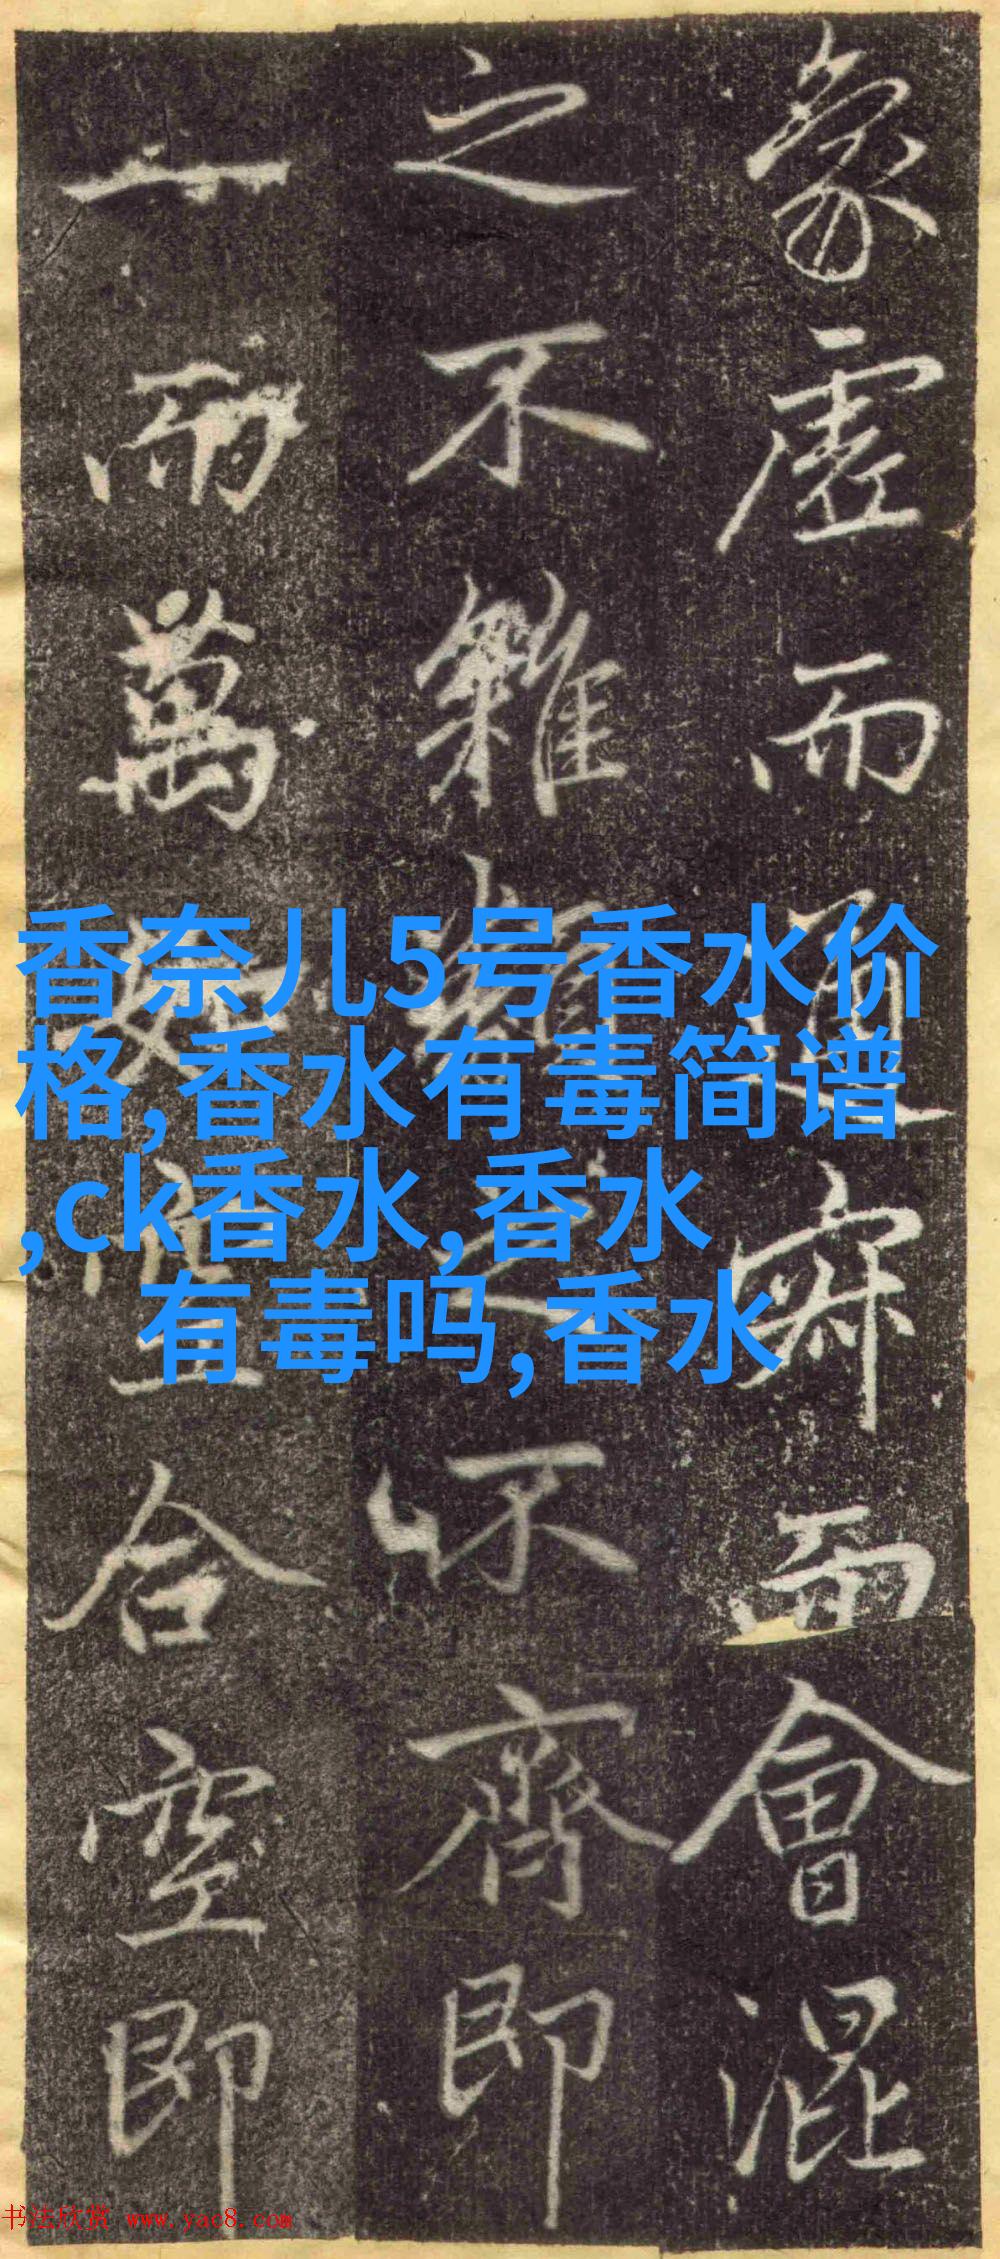 象虛而通寂而會混
之不雜之不齊即
一而萬合空即
香奈儿5号香水价
格,香水有毒简谱
,ck香水,香水
有毒吗,香水
书法欣赏 www.yac8.com